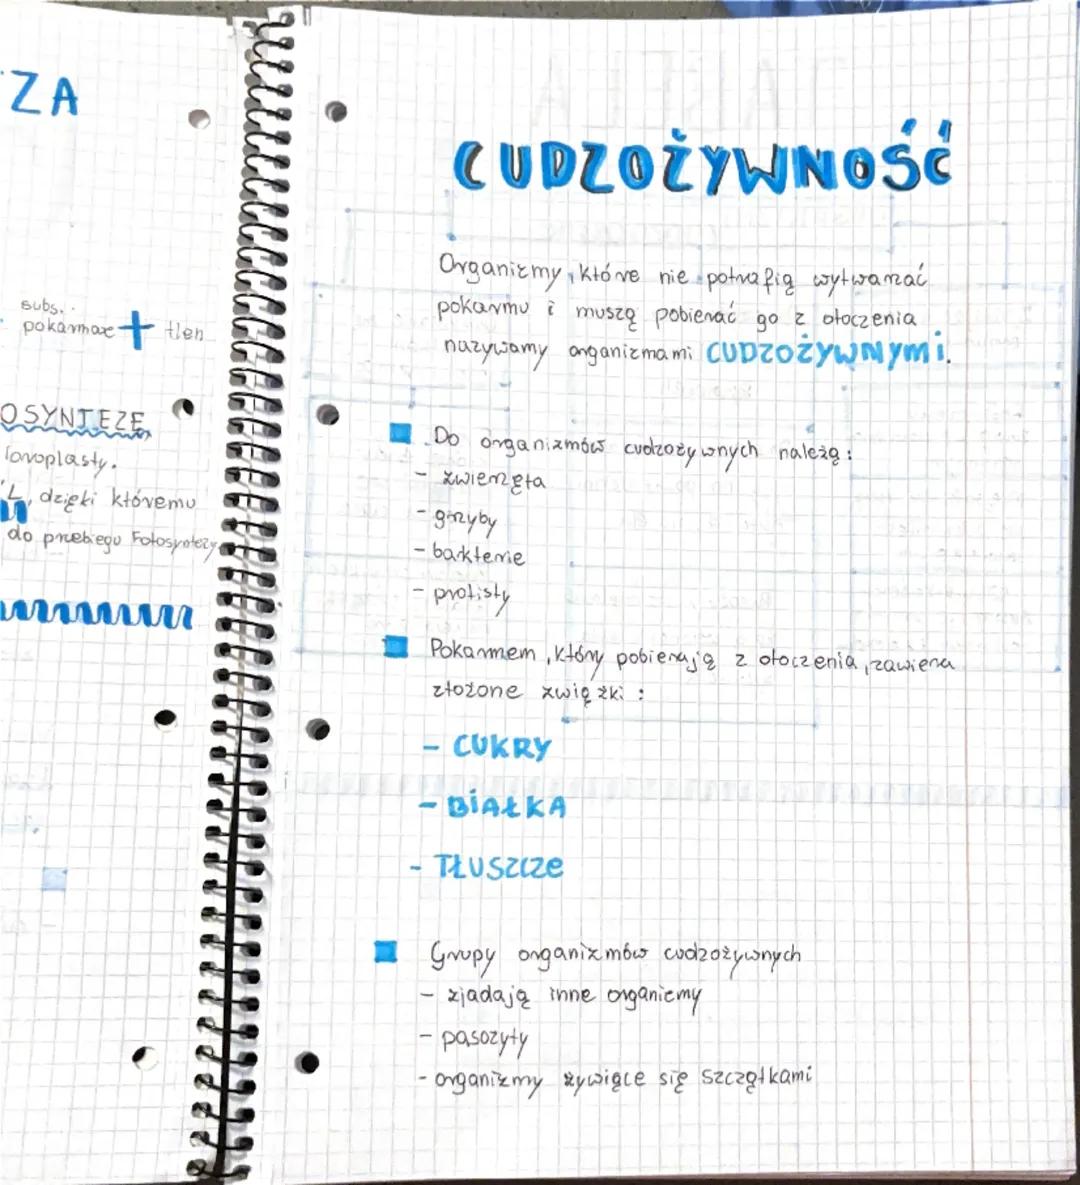 ZA
subs..
pokarmoe + tlen
OSYNTEZE
loroplasty.
Ł, dzięki któremu
do przebiegu Fotosyntezy
CUDZOŻYWNOŚĆ
Organizmy, które nie potrafią wytwarzać
pokarmu i muszą pobierać go z otoczenia
nazywamy organizmami CUDZOŻYWNYMI.
Do organizmów cudzożywnych należą:
- zwierzęta
- grzyby
- bakterie
- protisty
Pokarmem, który pobierają z otoczenia, zawiera
złożone związki:
- CUKRY
- BIAŁKA
- TŁUSZCZE
Grupy organizmów cudzożywnych
- zjadają inne organizmy
- pasożyty
- organizmy żywiące się szczątkami